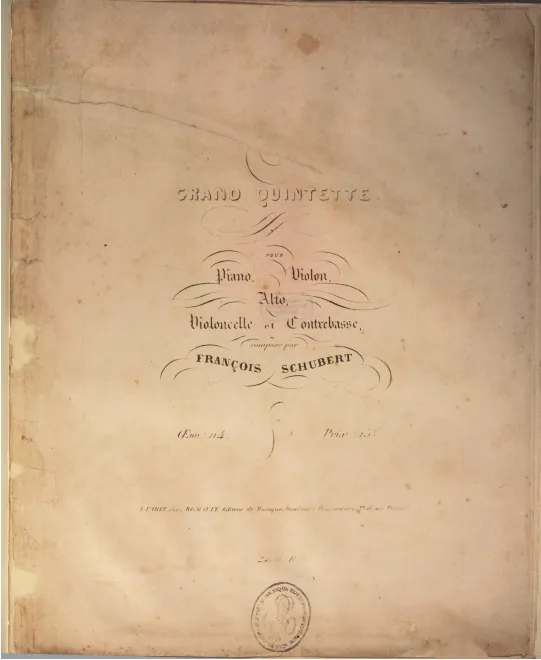 GRAND QUINTETTE
POUR
Piano, Violon,
Alto,
Violoncelle et Contrebasse,
composé par
FRANÇOIS SCHUBERT
Œuv: 114. Prix: 15
A PARIS, chez RICHAULT, Editeur de Musique, Boulevard Poissonnière,